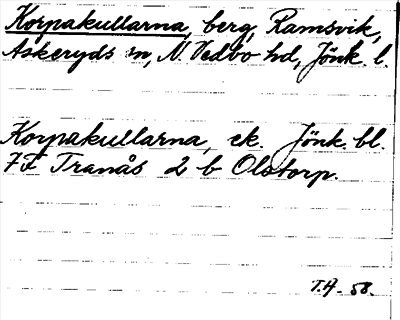 Korpakullarna, berg, Ramsvik,
Askeryds sn, N. Vedbo hd, Jönk. l.
Korpakullarna, ek. Jönk. bl.
7F Tranås 2 b Olstorp.
T.A. 58.